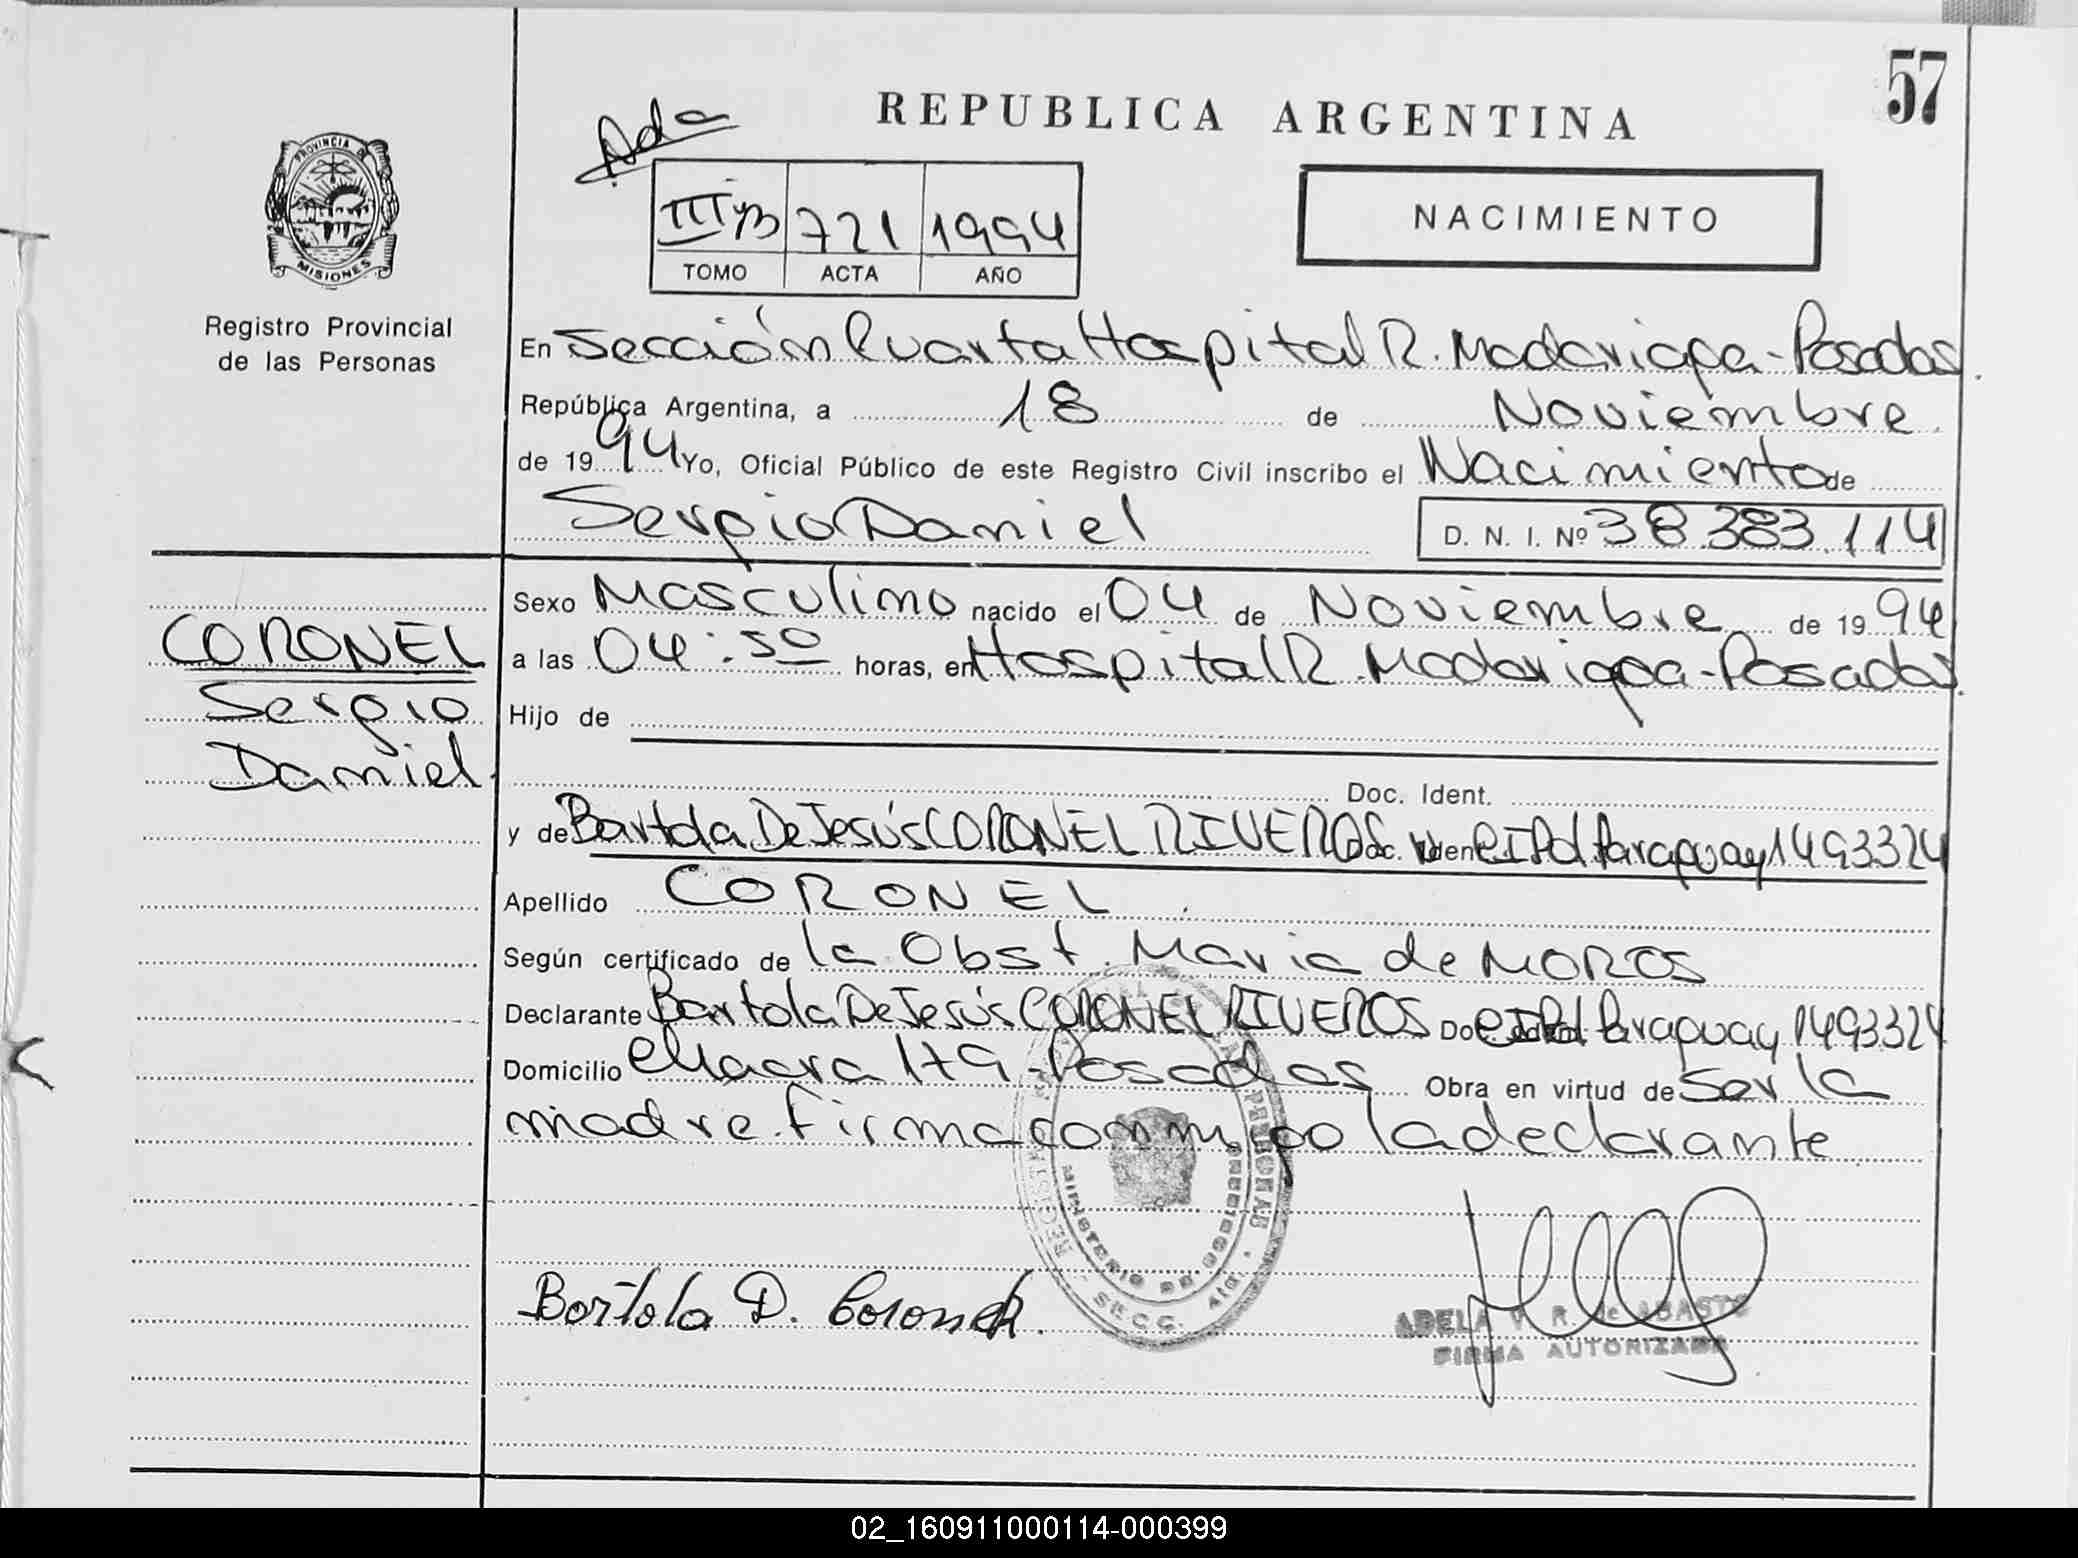 57
REPUBLICA ARGENTINA
Ada
PROVINCIA DE
MISIONES
Registro Provincial
de las Personas
III y/B 721 1994
TOMO ACTA AÑO
NACIMIENTO
En Sección Cuarta Hospital R. Madariaga - Posadas.
República Argentina, a 18 de Noviembre
de 1994 Yo, Oficial Público de este Registro Civil inscribo el Nacimiento de
Sergio Daniel D. N. I. Nº 38.383.114
CORONEL
Sergio
Daniel
Sexo Masculino nacido el 04 de Noviembre de 1994
a las 04:50 horas, en Hospital R. Madariaga - Posadas.
Hijo de
Doc. Ident.
y de Bartola De Jesús CORONEL RIVEROS Doc. Iden CI Pol Paraguay 1493324
Apellido CORONEL
Según certificado de la Obst. Maria de MOROS
Declarante Bartola De Jesús CORONEL RIVEROS Do CI Pol Paraguay 1493324
Domicilio Chacra 179 - Posadas Obra en virtud de Ser la
madre. firma conmigo la declarante
MINISTERIO DE GOBIERNO
SECC. 4ta.
Bartola D. Coronel.
ADELA V. R. de ABASTO
FIRMA AUTORIZADA
02_160911000114-000399